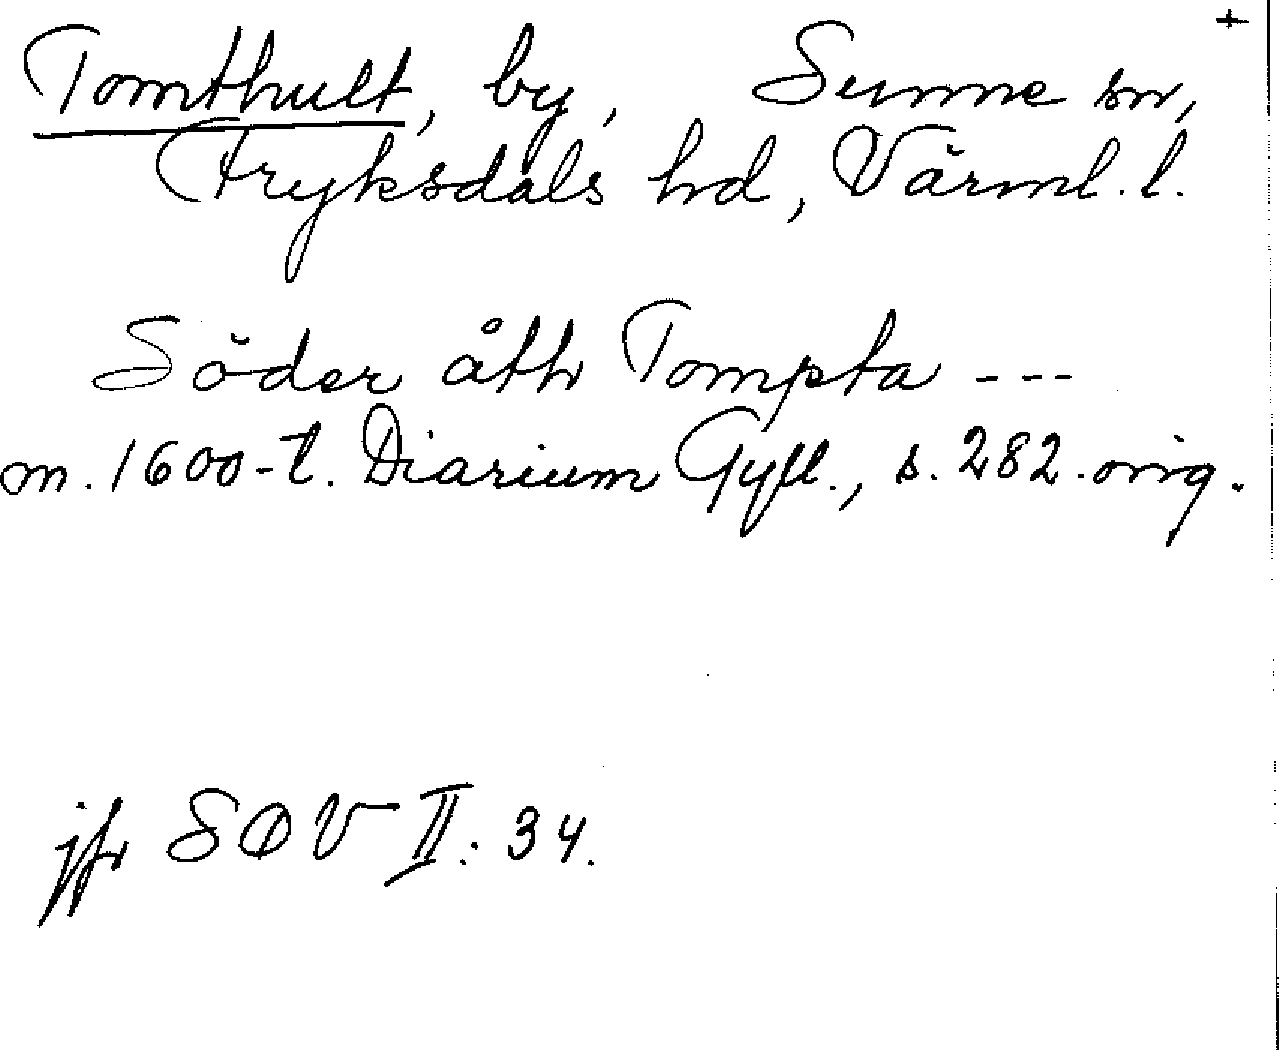 +
Tomthult, by, Sunne sn,
Fryksdals hd, Värml. l.
Söder åth Tompta ---
m. 1600-t. Diarium Gyll., s. 282. orig.
jfr SOV II: 34.